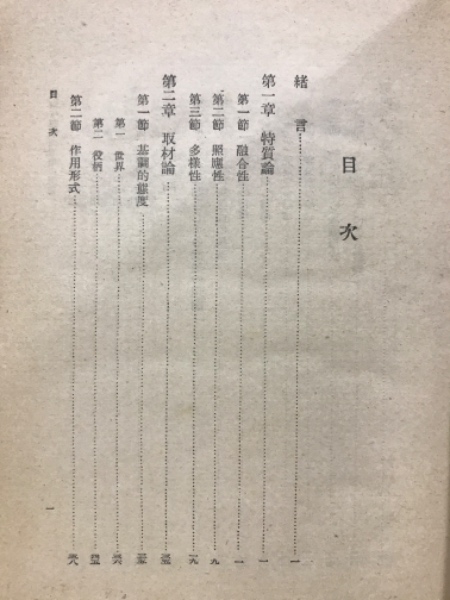 目次
緒言 一
第一章 特質論 一
第一節 融合性 一
第二節 照應性 九
第三節 多樣性 一九
第二章 取材論
第一節 基調的態度
第一 世界
第二 役柄
第二節 作用形式
目次
一